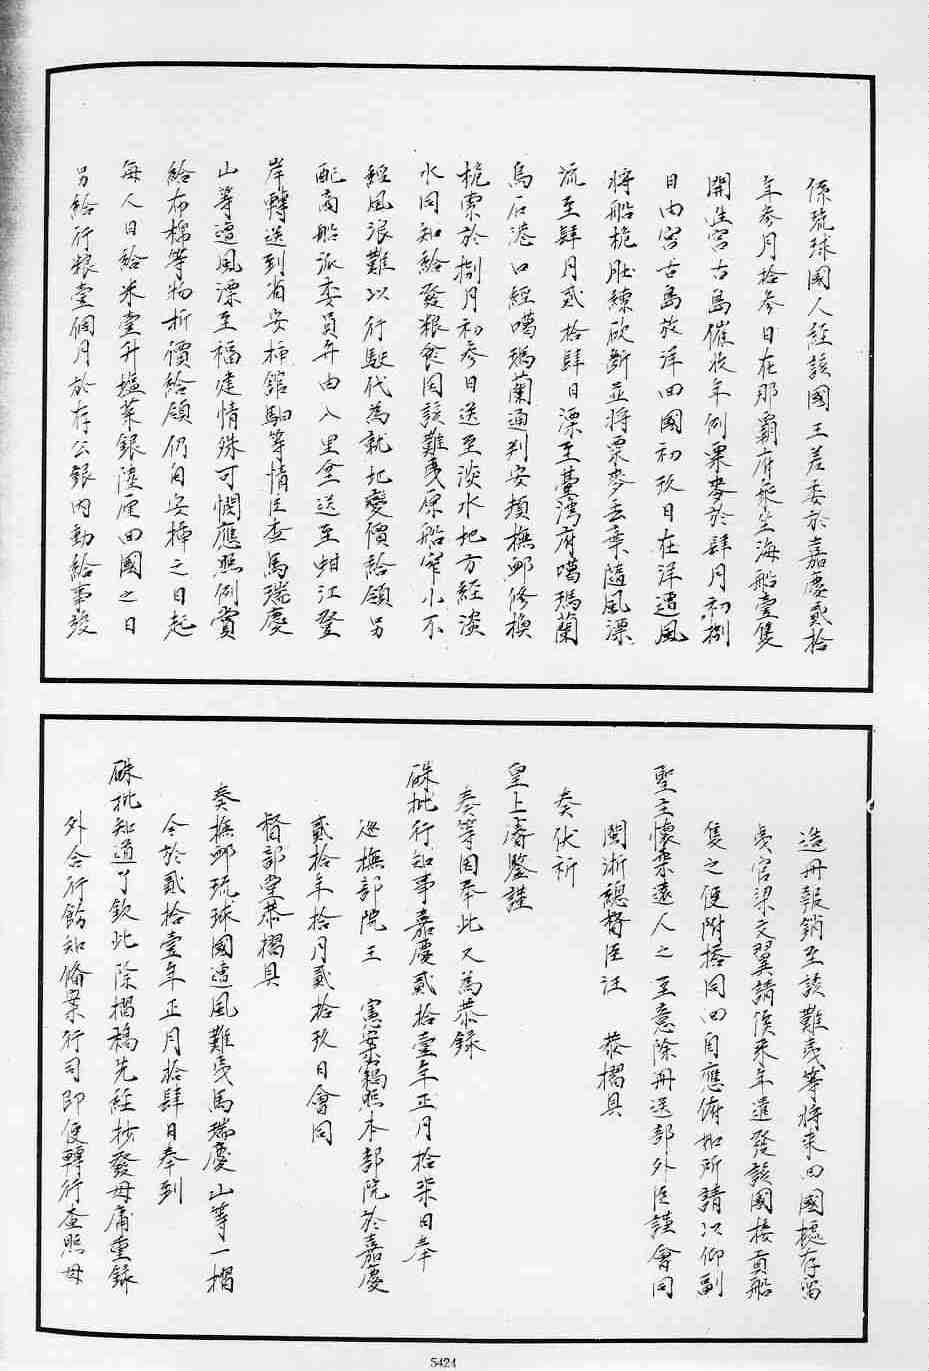 係琉球國人經該國王差委於嘉慶貳拾
年叁月拾叁日在那霸府乘坐海船壹隻
開進宮古島催收年例粟麥於肆月初捌
日由宮古島放洋回國初玖日在洋遭風
將船桅肚練砍斷並將粟麥丟棄隨風漂
流至肆月貳拾肆日漂至臺灣府噶瑪蘭
烏石港口經噶瑪蘭通判安頓撫卹修換
桅索於捌月初叁日送至淡水地方經淡
水同知給發粮食因該難夷原船窄小不
經風浪難以行駛代為就地變價給領另
配商船派委員弁由八里坌送至蚶江登
岸轉送到省安揷館馹等情臣查馬瑞慶
山等遭風漂至福建情殊可憫應照例賞
給布棉等物折價給領仍自安揷之日起
每人日給米壹升塩菜銀陸厘回國之日
另給行粮壹個月於存公銀內動給事竣
造冊報銷至該難夷等將來回國據存留
夷官梁文翼請俟來年遣發該國接貢船
隻之便附搭同回自應俯如所請以仰副
聖主懷柔遠人之至意除冊送部外臣謹會同
閩浙總督臣汪 恭摺具
奏伏祈
皇上睿鑒謹
奏等因奉此又為恭錄
硃批行知事嘉慶貳拾壹年正月拾柒日奉
巡撫部院王 憲案竊照本部院於嘉慶
貳拾年拾月貳拾玖日會同
督部堂恭摺具
奏撫卹琉球國遭風難夷馬瑞慶山等一摺
今於貳拾壹年正月拾肆日奉到
硃批知道了欽此除摺稿先經抄發毋庸重錄
外合行飭知備案行司即便轉行查照毋
5424